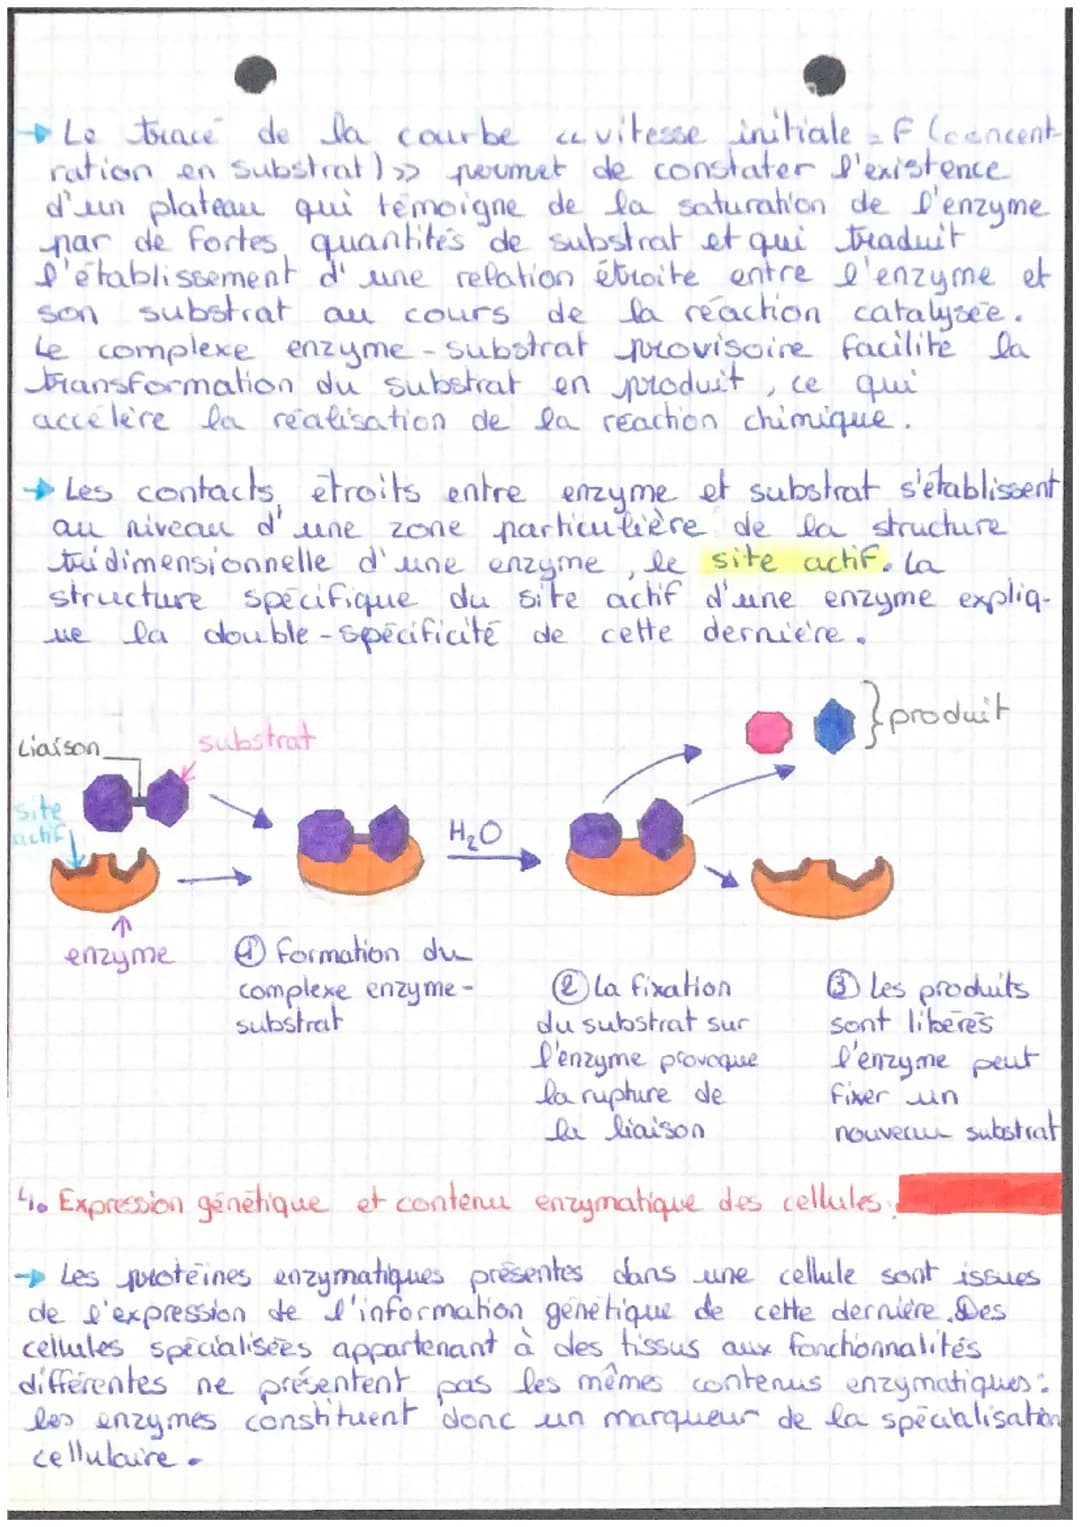 → Le tracé de la courbe « vitesse initiale = F (concent-
ration en substrat) » permet de constater l'existence
d'un plateau qui témoigne de la saturation de l'enzyme
par de fortes quantités de substrat et qui traduit
l'établissement d'une relation étroite entre l'enzyme et
son substrat au cours de la réaction catalysée.
Le complexe enzyme-substrat provisoire facilite la
transformation du substrat en produit, ce qui
accélère la réalisation de la réaction chimique.
→ Les contacts étroits entre enzyme et substrat s'établissent
au niveau d'une zone particulière de la structure
tridimensionnelle d'une enzyme, le site actif. La
structure spécifique du site actif d'une enzyme expliq-
ue la double-spécificité de cette dernière.
produit
Liaison
substrat
site
actif
H₂O
enzyme
① Formation du
complexe enzyme-
substrat
② La fixation
du substrat sur
l'enzyme provoque
la rupture de
la liaison
③ Les produits
sont libérés
l'enzyme peut
fixer un
nouveau substrat
4. Expression génétique et contenu enzymatique des cellules:
→ Les protéines enzymatiques présentes dans une cellule sont issues
de l'expression de l'information génétique de cette dernière. Des
cellules spécialisées appartenant à des tissus aux fonctionnalités
différentes ne présentent pas les mêmes contenus enzymatiques:
les enzymes constituent donc un marqueur de la spécialisation
cellulaire.